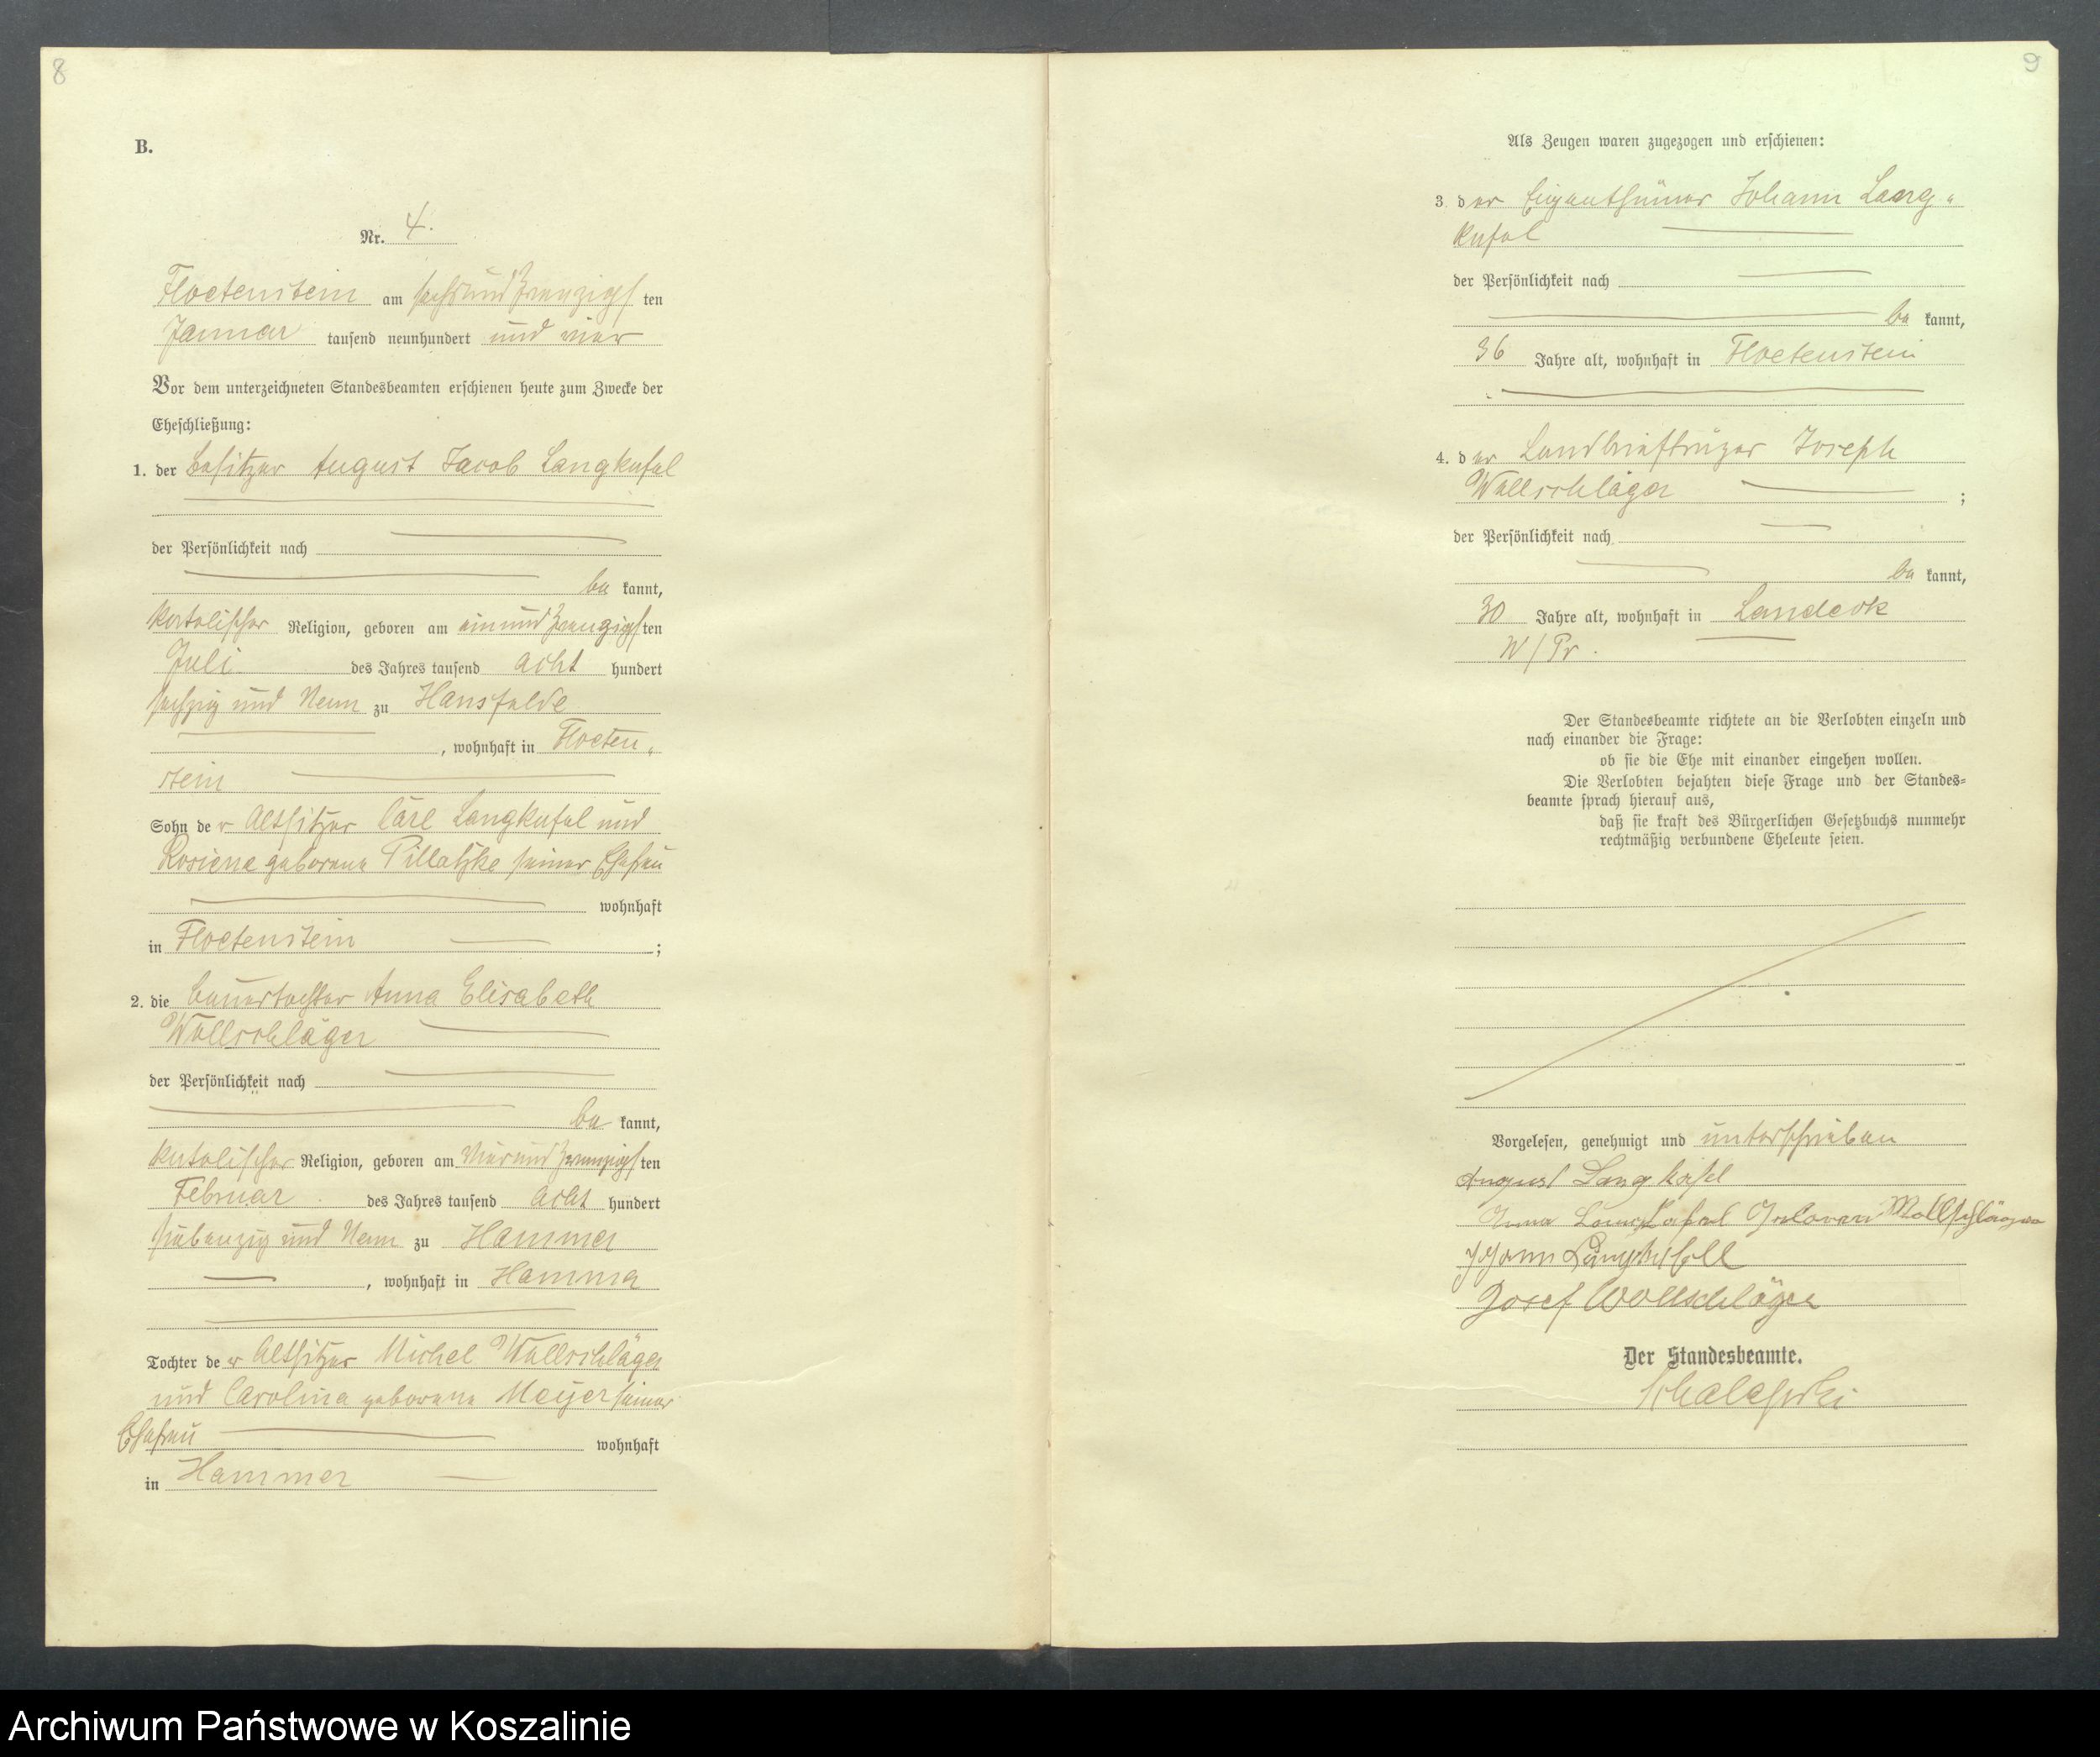 8
B.
Nr. 4.
Floetenstein am sechsundzwanzigsten
Januar tausend neunhundert und vier
Vor dem unterzeichneten Standesbeamten erschienen heute zum Zwecke der
Eheschließung:
1. der Besitzer August Jacob Langkafel
der Persönlichkeit nach
be kannt,
katolischer Religion, geboren am einundzwanzigsten
Juli des Jahres tausend acht hundert
sechzig und Neun zu Hansfelde
, wohnhaft in Floeten-
stein
Sohn der Altsitzer Carl Langkafel und
Rosiena geborene Pillatzke seiner Ehefrau
wohnhaft
in Floetenstein ;
2. die Bauertochter Anna Elisabeth
Wollschläger
der Persönlichkeit nach
be kannt,
katolischer Religion, geboren am vierundzwanzigsten
Februar des Jahres tausend acht hundert
siebenzig und Neun zu Hammer
, wohnhaft in Hammer
Tochter der Altsitzer Michel Wollschläger
und Carolina geborene Meyer seiner
Ehefrau wohnhaft
in Hammer
9
Als Zeugen waren zugezogen und erschienen:
3. der Eigenthümer Johann Lang-
kafel
der Persönlichkeit nach
be kannt,
36 Jahre alt, wohnhaft in Floetenstein
4. der Landbriefträger Joseph
Wollschläger ;
der Persönlichkeit nach
be kannt,
30 Jahre alt, wohnhaft in Landeck
W/Pr.
Der Standesbeamte richtete an die Verlobten einzeln und
nach einander die Frage:
ob sie die Ehe mit einander eingehen wollen.
Die Verlobten bejahten diese Frage und der Standes-
beamte sprach hierauf aus,
daß sie kraft des Bürgerlichen Gesetzbuchs nunmehr
rechtmäßig verbundene Eheleute seien.
Vorgelesen, genehmigt und unterschrieben
August Langkafel
Anna Langkafel Geboren Wollschläger
Johann Langkafel
Josef Wollschläger
Der Standesbeamte.
Archiwum Państwowe w Koszalinie